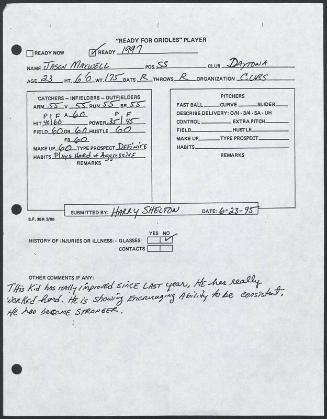 "READY FOR ORIOLES" PLAYER
READY NOW ✓ READY 1997
NAME JASON MAXWELL POS SS CLUB DAYTONA
AGE 23 HT. 6 0 WT. 175 BATS R THROWS R ORGANIZATION CUBS
CATCHERS - INFIELDERS - OUTFIELDERS
ARM 55 V 55 RUN 55 SR 55
P F A 60 P F
HIT 40/60 POWER 35/45
FIELD 60 OM 60 HUSTLE 60
FR 60
MAKE UP 60 TYPE PROSPECT DEFINITE
HABITS Plays Hard & Aggressive
REMARKS
PITCHERS
FAST BALL CURVE SLIDER
DESCRIBE DELIVERY: O/H - 3/4 - SA - UH
CONTROL EXTRA PITCH
FIELD HUSTLE
MAKE UP TYPE PROSPECT
HABITS
REMARKS
SUBMITTED BY: HARRY SHELTON DATE: 6-23-95
YES NO
HISTORY OF INJURIES OR ILLNESS: - GLASSES ✓
CONTACTS
OTHER COMMENTS IF ANY:
THIS KID has really improved SINCE LAST year, He has really
worked hard. He is showing Encouraging Ability to be consistent.
He has become STRONGER.